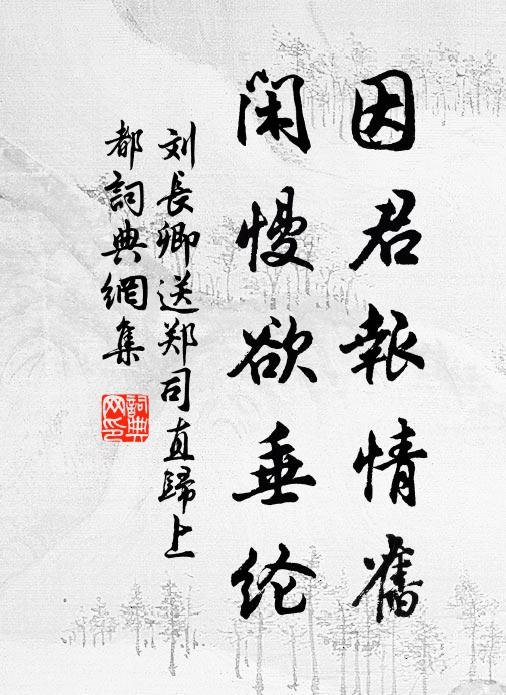 因君報情舊
閑慢欲垂纶
刘長卿送郑司直歸上
都詞典網集
詞典
网印